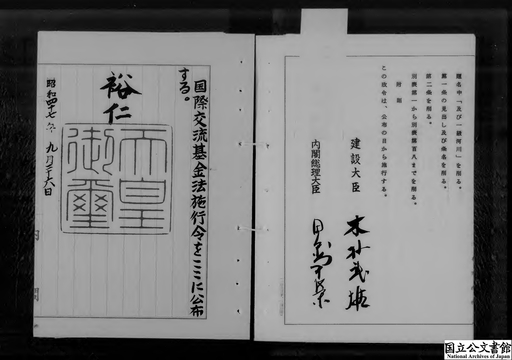 題名中「及び一級河川」を削る。
第一条の見出し及び条名を削る。
第二条を削る。
別表第一から別表第百八までを削る。
附則
この政令は、公布の日から施行する。
建設大臣 木村武雄
内閣総理大臣 田中角榮
国際交流基金法施行令をここに公布
する。
裕仁
天皇
御璽
昭和四十七年九月二十六日
国立公文書館
National Archives of Japan